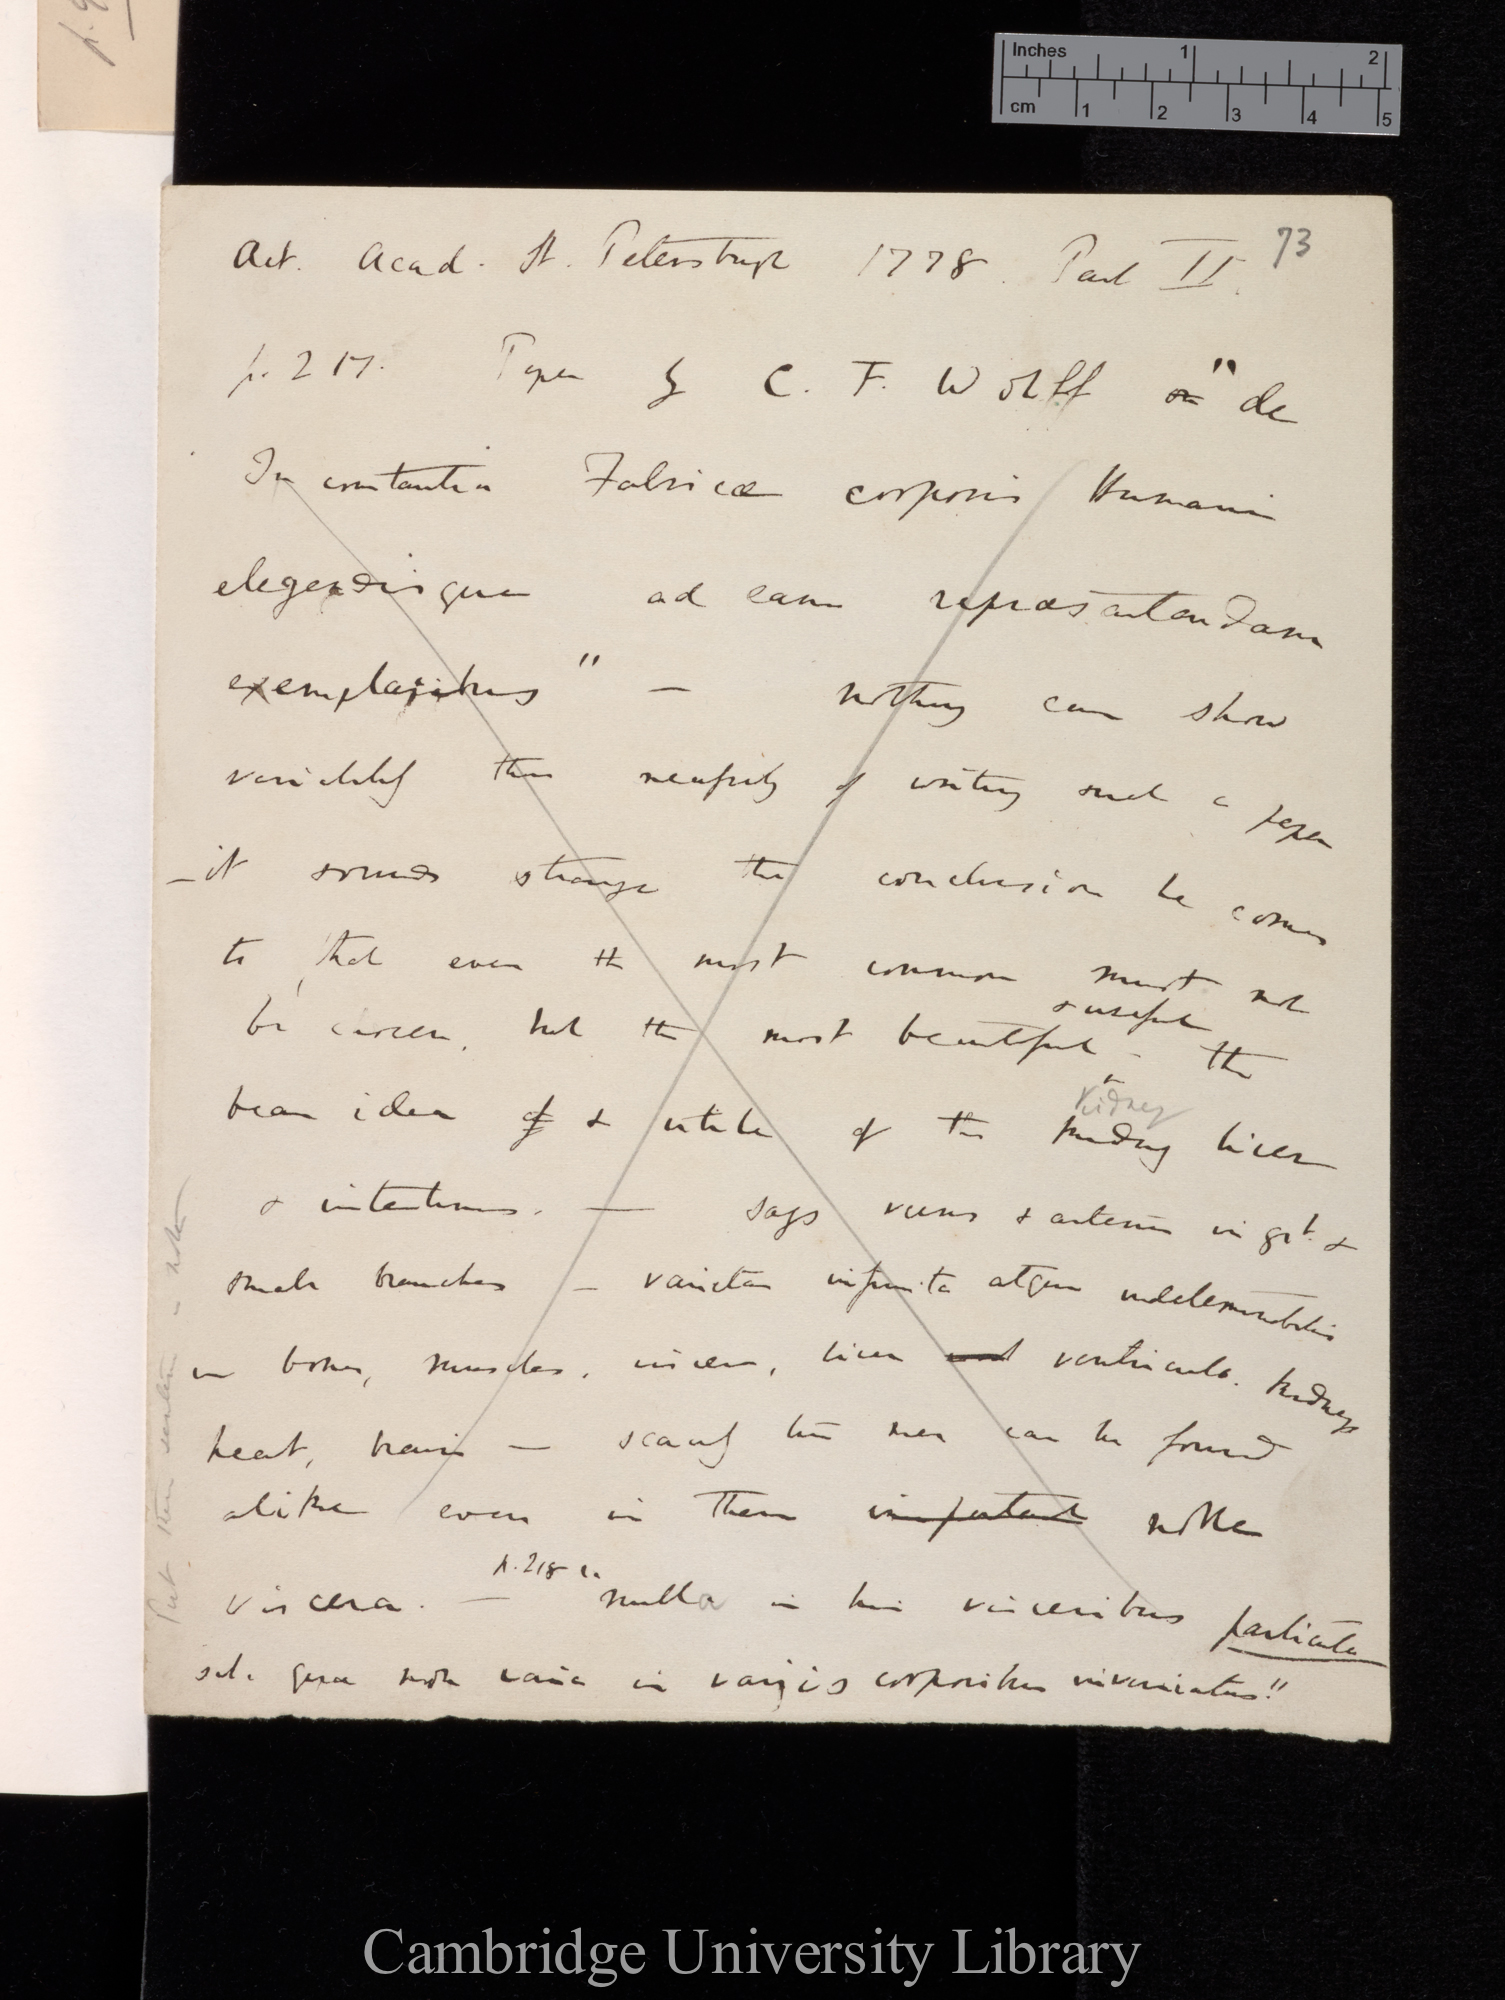 p. 9
Inches 1 2
cm 1 2 3 4 5
73
Act. Acad. St. Petersburgh 1778. Part II.
p. 217. Paper by C. F. Wolff on "de
Inconstantia Fabricæ corporis Humani
elegendisque ad eam repræsentandam
exemplaribus" — nothing can show
variability than necessity of writing such a paper
— it sounds strange the conclusion he comes
to, that even the most common must not
be chosen, but the most beautiful & useful – the
beau idea of & utile of the kidney Kidney liver
& intestines. — says veins & arteries in grt. &
small branches — varietas infinita atque indeterminabilis
in bones, muscles, viscera, liver and ventricule. kidneys
heart, brain — scarcely two men can be found
alike even in these important noble
viscera. — p. 218 "nulla in his visceribus particula
sit quæ non varia in variis corporibus inveniatur!!
Put
Cambridge University Library